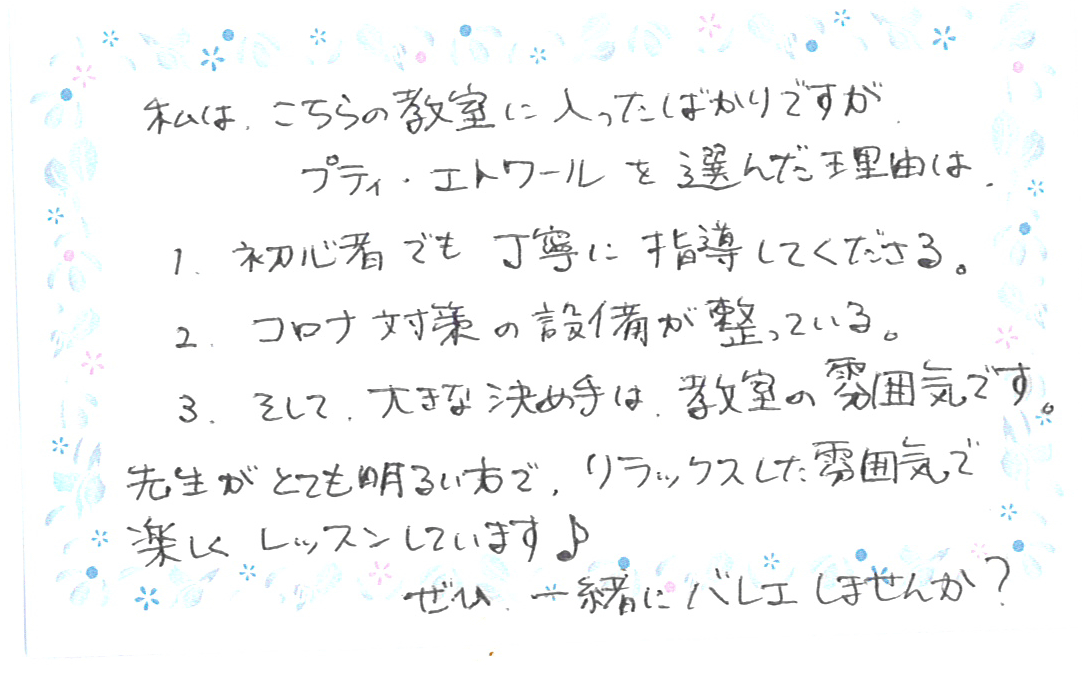 私は、こちらの教室に入ったばかりですが、
プティ・エトワールを選んだ理由は、
1. 初心者でも丁寧に指導してくださる。
2. コロナ対策の設備が整っている。
3. そして、大きな決め手は、教室の雰囲気です。
先生がとても明るい方で、リラックスした雰囲気で
楽しくレッスンしています♪
ぜひ、一緒にバレエしませんか?